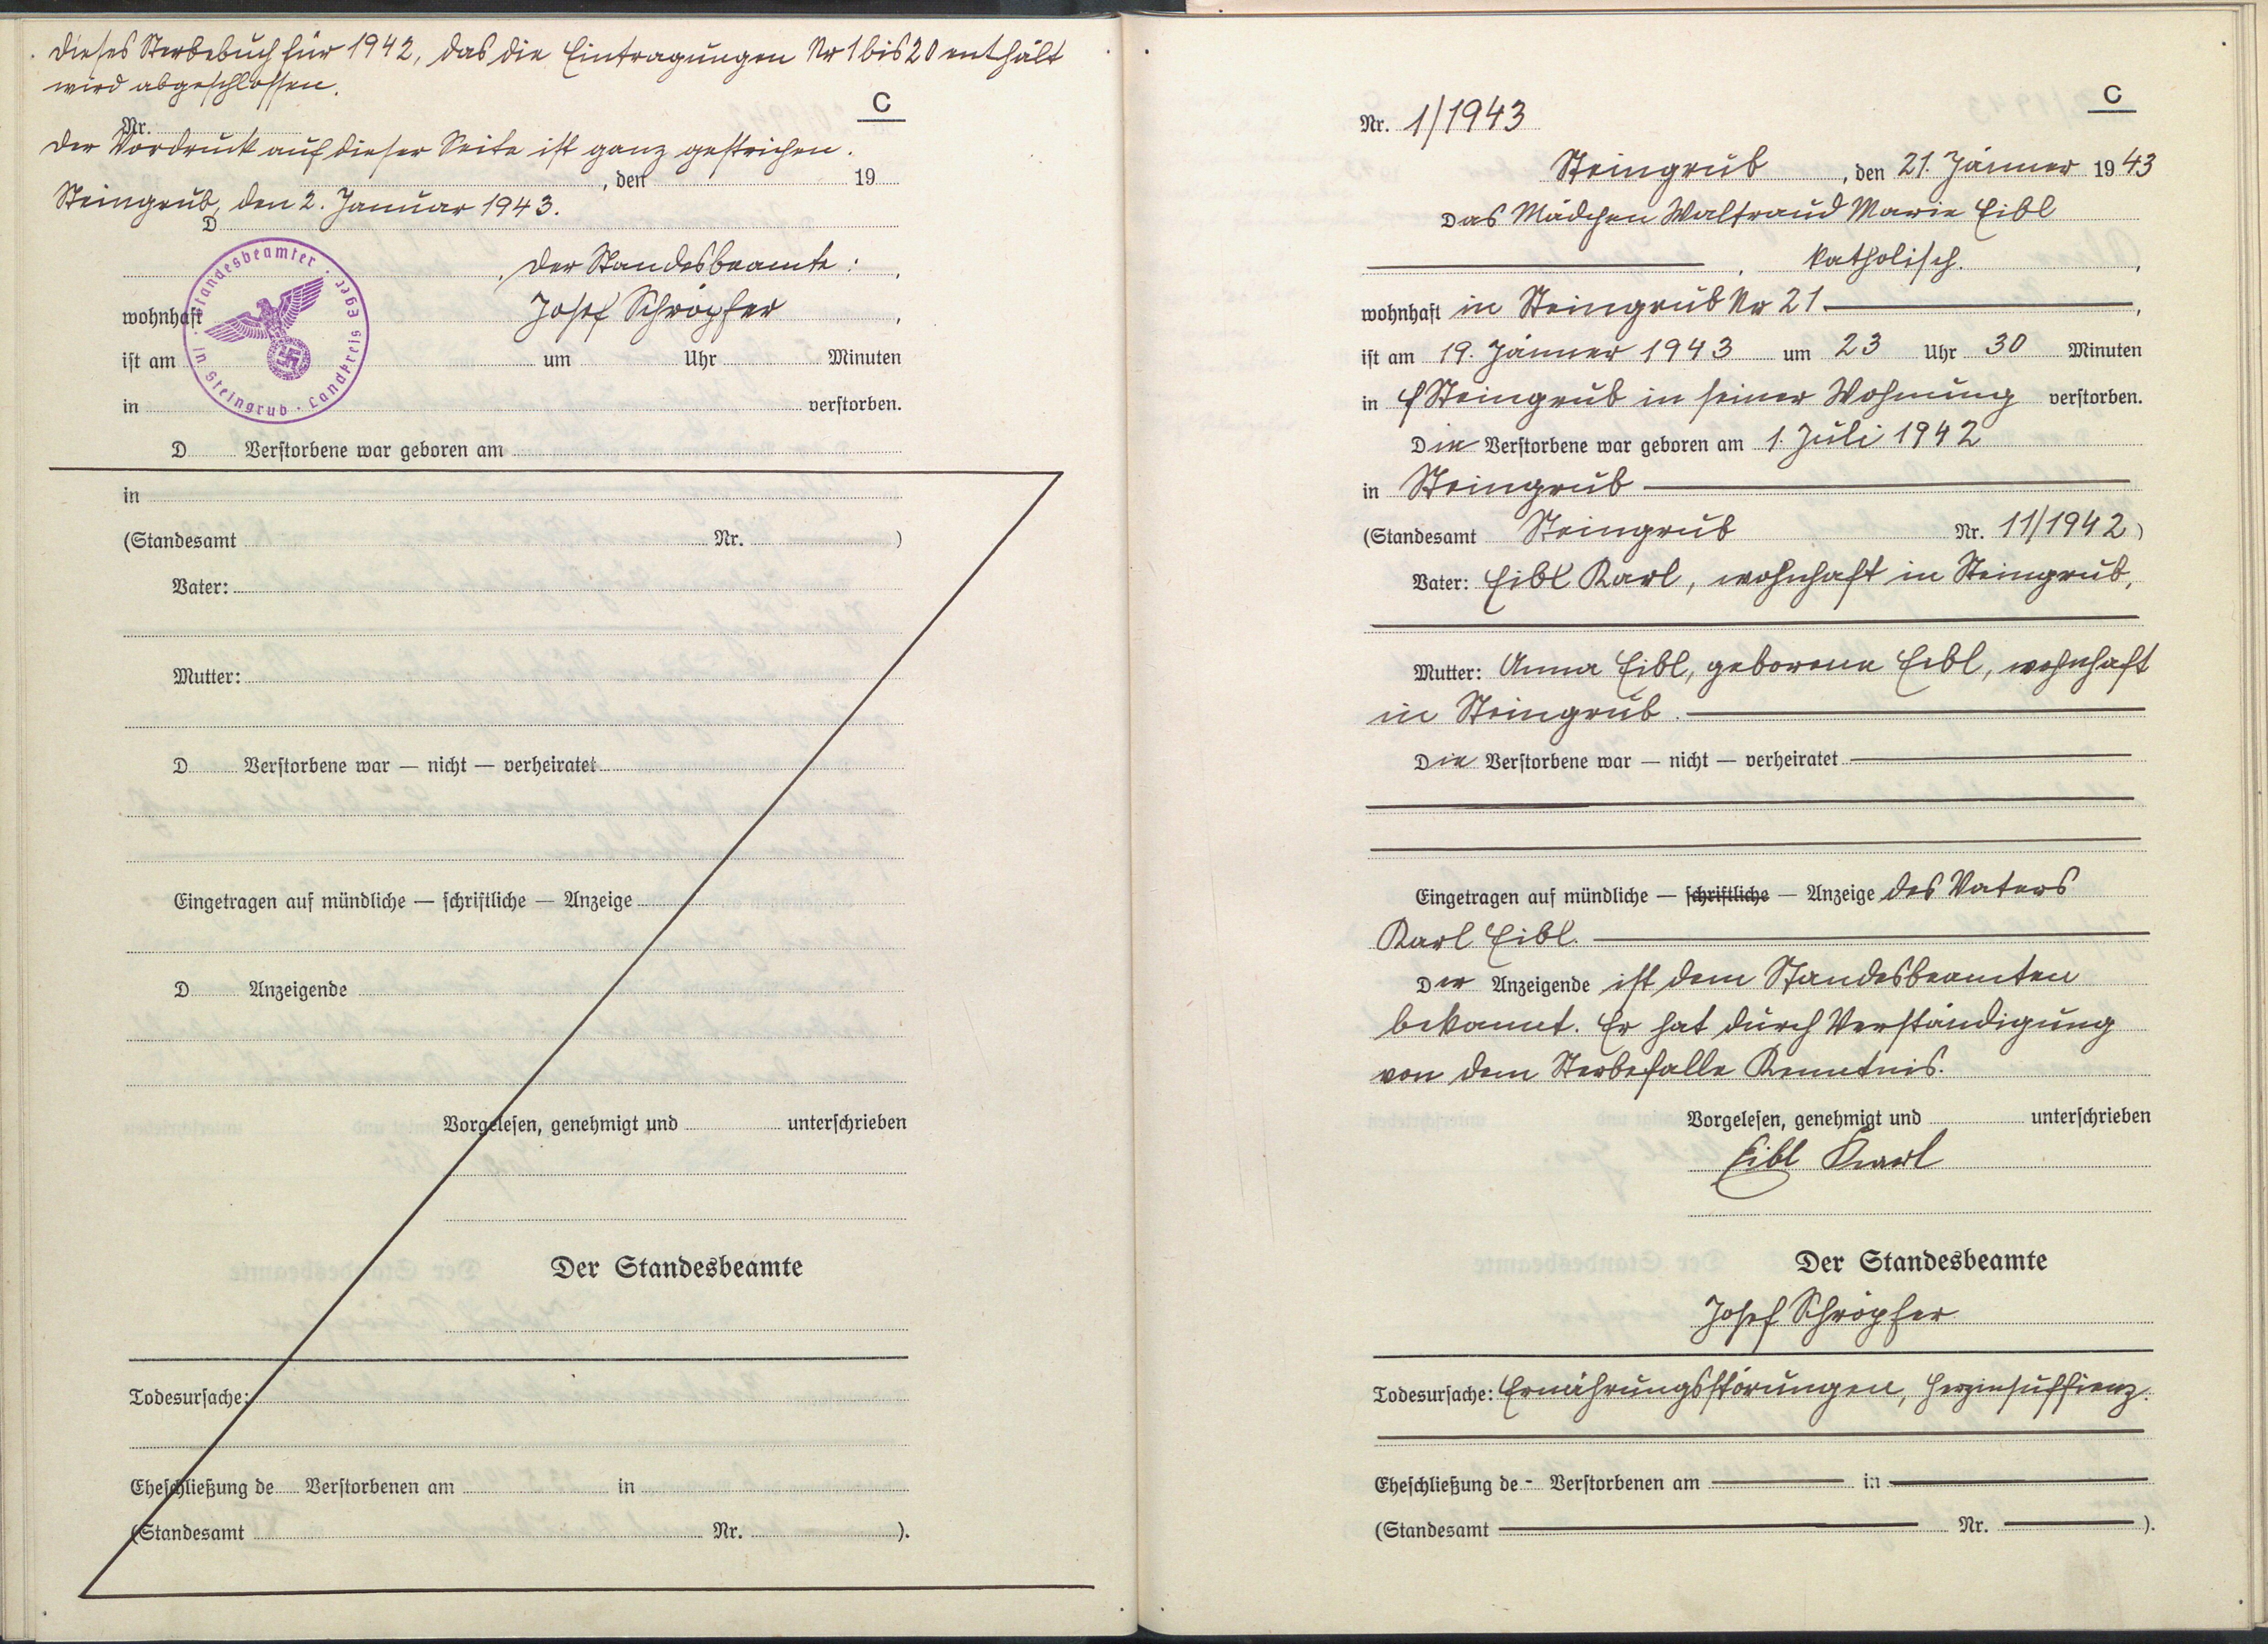 Dieses Sterbebuch für 1942, das die Eintragungen Nr 1 bis 20 enthält
wird abgeschlossen.
C
Nr.
Der Vordruck auf dieser Seite ist ganz gestrichen.
, den 19
Steingrub, den 2. Januar 1943.
D
Der Standesbeamte:
Standesbeamter · in Steingrub · Landkreis Eger ·
wohnhaft Josef Schröpfer ,
ist am um Uhr Minuten
in verstorben.
D Verstorbene war geboren am
in
(Standesamt Nr. )
Vater:
Mutter:
D Verstorbene war — nicht — verheiratet
Eingetragen auf mündliche — schriftliche — Anzeige
D Anzeigende
Vorgelesen, genehmigt und unterschrieben
Der Standesbeamte
Todesursache:
Eheschließung de Verstorbenen am in
(Standesamt Nr. ).
C
Nr. 1/1943
Steingrub , den 21. Jänner 1943
Das Mädchen Waltraud Marie Eibl
, katholisch. ,
wohnhaft in Steingrub Nr 21 ,
ist am 19. Jänner 1943 um 23 Uhr 30 Minuten
in Steingrub in seiner Wohnung verstorben.
Die Verstorbene war geboren am 1. Juli 1942
in Steingrub
(Standesamt Steingrub Nr. 11/1942)
Vater: Eibl Karl, wohnhaft in Steingrub,
Mutter: Anna Eibl, geborene Eibl, wohnhaft
in Steingrub.
Die Verstorbene war — nicht — verheiratet
Eingetragen auf mündliche — schriftliche — Anzeige des Vaters
Karl Eibl.
Der Anzeigende ist dem Standesbeamten
bekannt. Er hat durch Verständigung
von dem Sterbefalle Kenntnis.
Vorgelesen, genehmigt und unterschrieben
Eibl Karl
Der Standesbeamte
Josef Schröpfer
Todesursache: Ernährungsstörungen, Herzinsuffienz.
Eheschließung de - Verstorbenen am in
(Standesamt Nr. ).